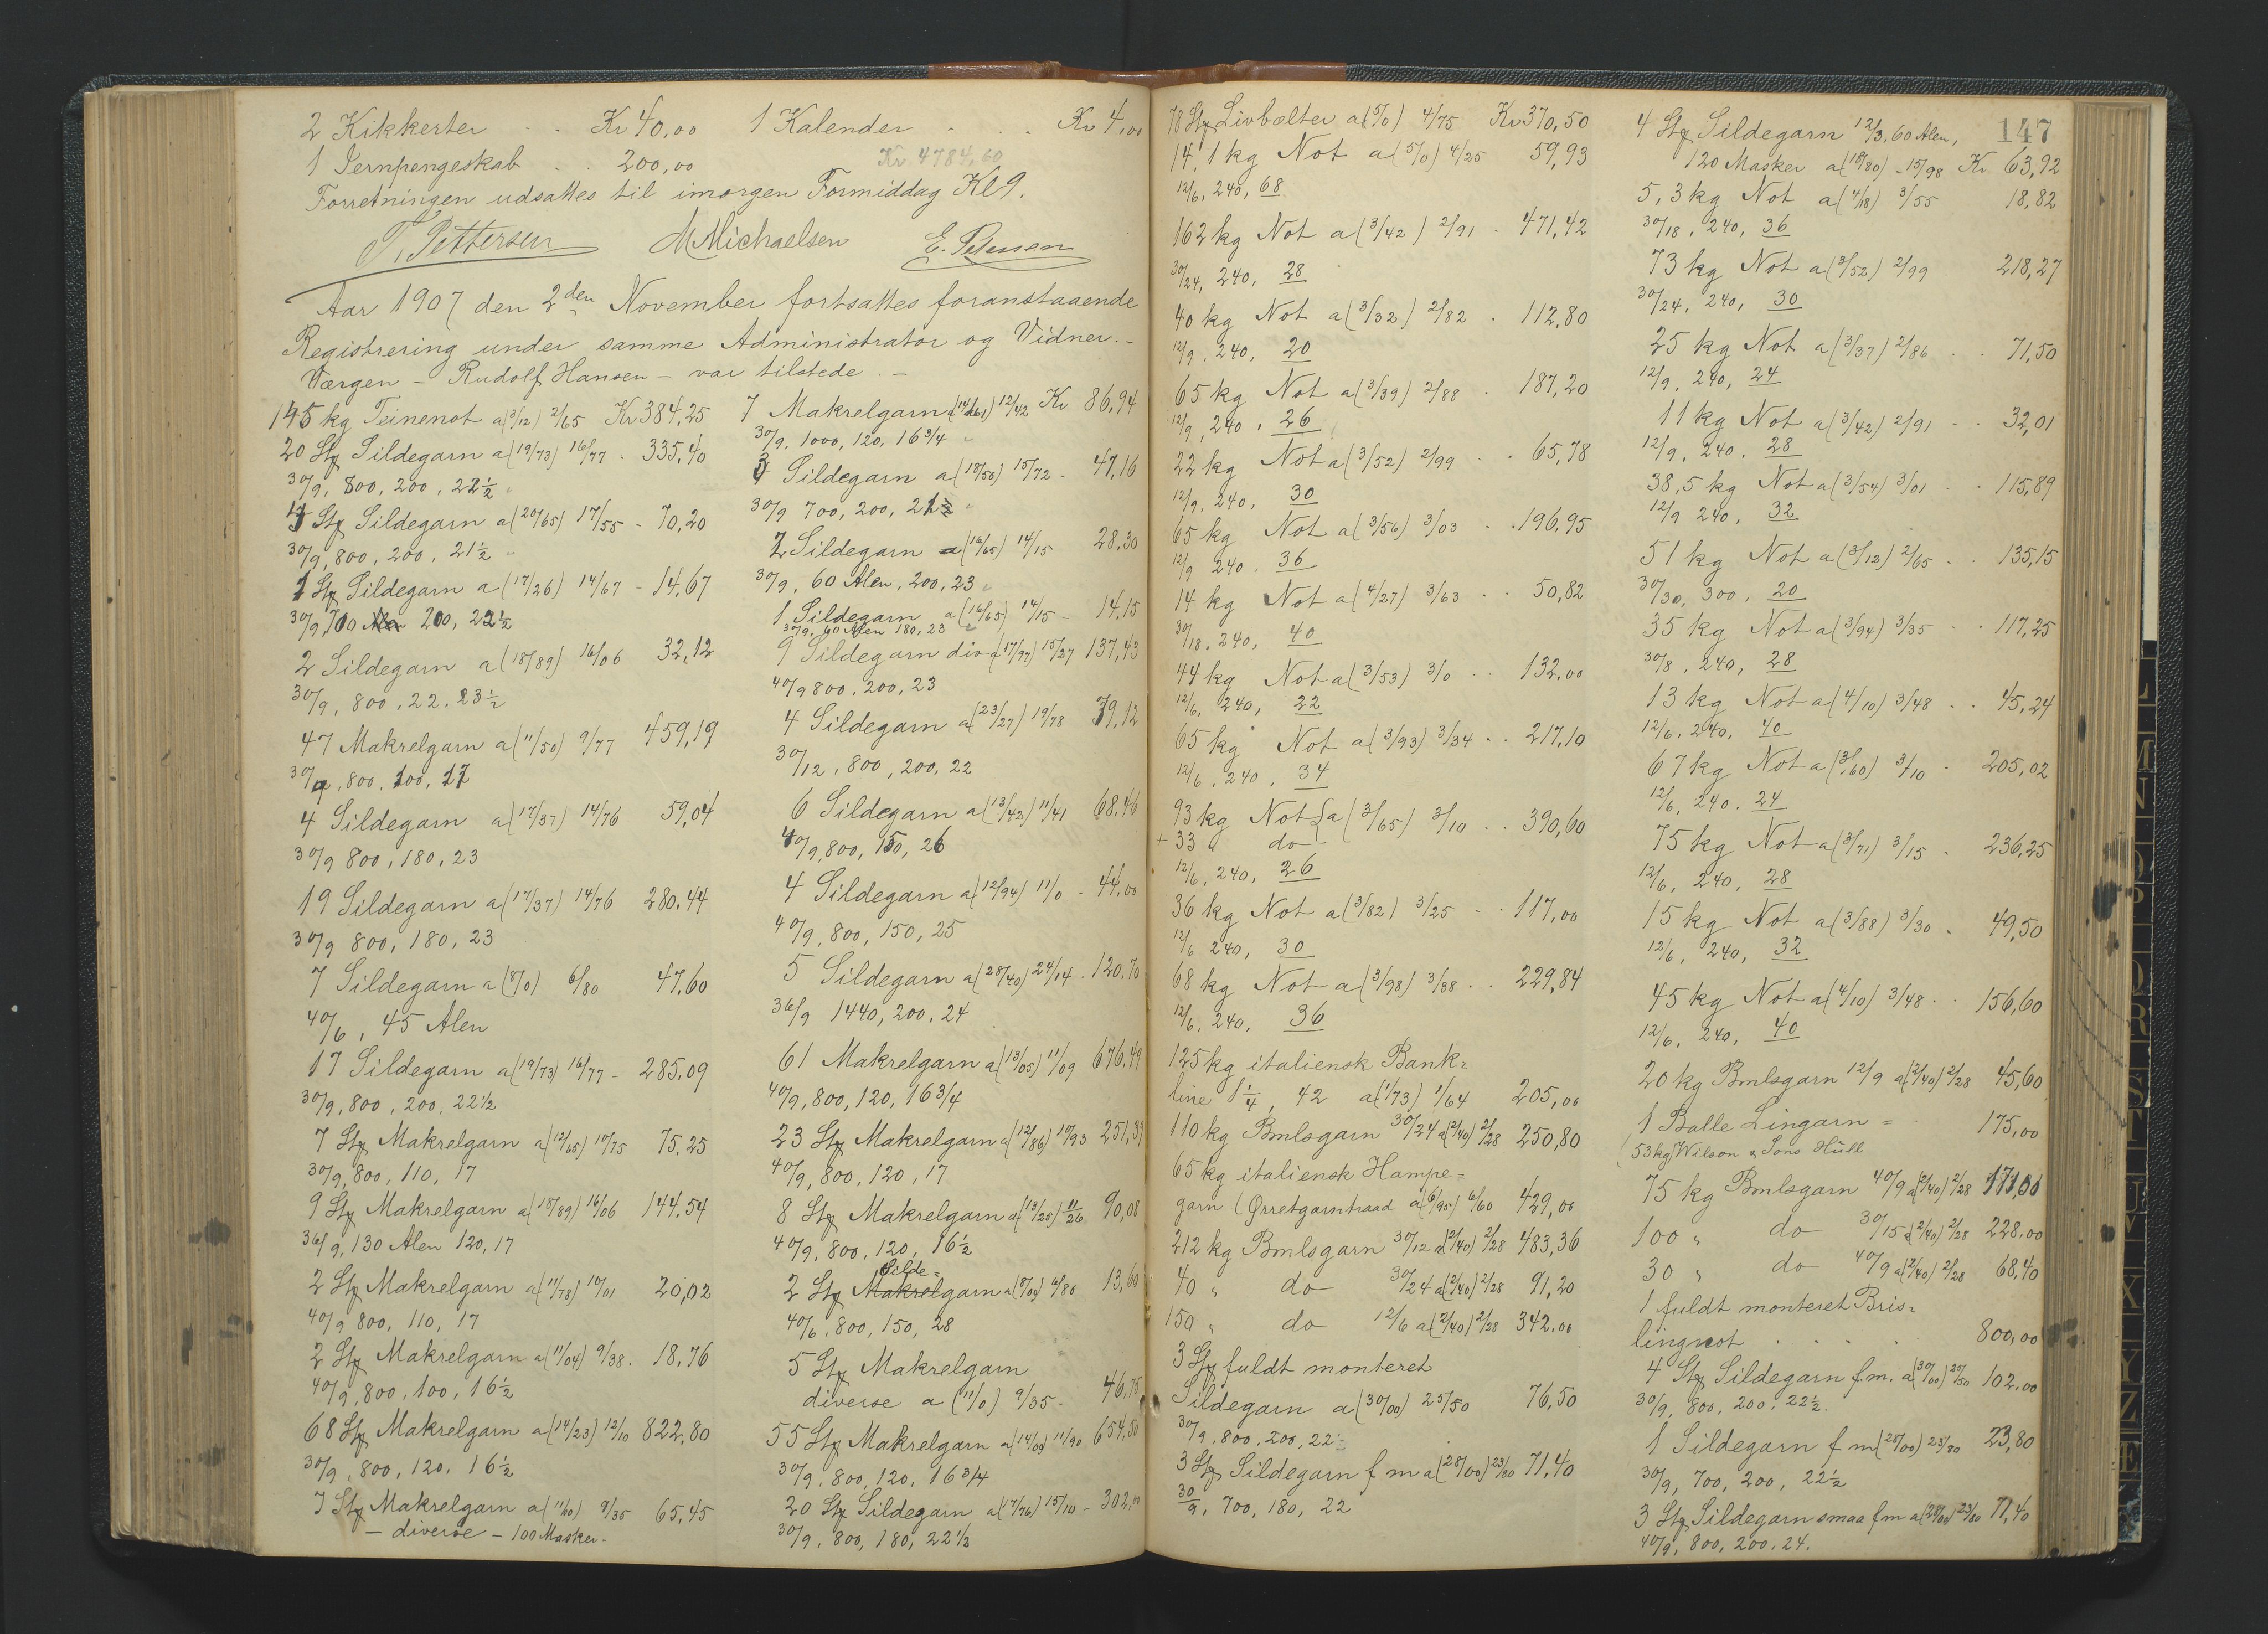 2 Kikkerter . . Kr 40,00
1 Jernpengeskab . . 200,00
1 Kalender . . . Kr 4,00
Kr 4784,60
Forretningen udsattes til imorgen Formiddag Kl 9.
T. Pettersen M Michaelsen E. Petersen
Aar 1907 den 2den November fortsattes foranstaaende
Registrering under samme Administrator og Vidner. -
Værgen - Rudolf Hansen - var tilstede. -
145 kg Teinenot a (3/12) 2/65 Kr 384,25
20 Stk Sildegarn a (19/73) 16/77 . 335,40
30/9, 800, 200, 22 1/2
4 Stk Sildegarn a (20/65) 17/55 - 70,20
30/9, 800, 200, 21 1/2
1 Stk Sildegarn a (17/26) 14/67 - 14,67
30/9, 700 200, 22 1/2
2 Sildegarn a (18/89) 16/06 32,12
30/9, 800, 22, 23 1/2
47 Makrelgarn a (11/50) 9/77 459,19
30/9, 800, 100, 17
4 Sildegarn a (17/37) 14/76 59,04
30/9 800, 180, 23
19 Sildegarn a (17/37) 14/76 280,44
30/9 800, 180, 23
7 Sildegarn a (8/0) 6/80 47,60
40/6, 45 Alen
17 Sildegarn a (19/73) 16/77 - 285,09
30/9, 800, 200, 22 1/2
7 Stk Makrelgarn a (12/65) 10/75 75,25
30/9, 800, 110, 17
9 Stk Makrelgarn a (18/89) 16/06 144,54
36/9, 130 Alen 120, 17
2 Stk Makrelgarn a (11/78) 10/01 20,02
40/9 800, 110, 17
2 Stk Makrelgarn a (11/04) 9/38 . 18,76
40/9, 800, 100, 16 1/2
68 Stk Makrelgarn a (14/23) 12/10 822,80
30/9, 800, 120, 16 1/2
7 Stk Makrelgarn a (11/00) 9/35 65,45
- diverse - 100 Masker -
7 Makrelgarn a (14/61) 12/42 Kr 86,94
30/9, 1000, 120, 16 3/4
3 Sildegarn a (18/50) 15/72 - 47,16
30/9 700, 200, 21 1/2
2 Sildegarn a (16/65) 14/15 28,30
30/9, 60 Alen, 200, 23
1 Sildegarn a (16/65) 14/15 - 14,15
30/9, 60 Alen 180, 23
9 Sildegarn div a (17/97) 15/27 137,43
40/9 800, 200, 23
4 Sildegarn a (23/27) 19/78 79,12
30/12, 800, 200, 22
6 Sildegarn a (13/42) 11/41 68,46
40/9, 800, 150, 26
4 Sildegarn a (12/94) 11/0 - 44,00
40/9, 800, 150, 25
5 Sildegarn a (28/40) 24/14 . 120,70
36/9 1440, 200, 24
61 Makrelgarn a (13/05) 11/09 676,49
40/9, 800, 120, 16 3/4
23 Stk Makrelgarn a (12/86) 10/93 251,39
40/9, 800, 120, 17
8 Stk Makrelgarn a (13/25) 11/26 90,08
40/9, 800, 120, 16 1/2
Silde=
2 Stk Makrelgarn a (8/00) 6/80 13,60
40/6, 800, 150, 28
5 Stk Makrelgarn
diverse a (11/0) 9/35 - 46,75
55 Stk Makrelgarn a (14/00) 11/90 654,50
30/9, 800, 120, 16 3/4
20 Stk Sildegarn a (17/76) 15/10 - 302,00
30/9, 800, 180, 22 1/2
78 Stk Livbælter a (5/0) 4/75 Kr 370,50
14,1 kg Not a (5/0) 4/25 59,93
12/6, 240, 68
162 kg Not a (3/42) 2/91 - 471,42
30/24, 240, 28
40 kg Not a (3/32) 2/82 . 112,80
12/9, 240, 20
65 kg Not a (3/39) 2/88 . 187,20
12/9, 240, 26
22 kg Not a (3/52) 2/99 . . 65,78
12/9, 240, 30
65 kg Not a (3/56) 3/03 . . 196,95
12/9 240, 36
14 kg Not a (4/27) 3/63 . . 50,82
30/18, 240, 40
44 kg Not a (3/53) 3/0 . . 132,00
12/6, 240, 22
65 kg Not a (3/93) 3/34 . . 217,10
12/6, 240, 34
93 kg Not { a (3/65) 3/10 . . 390,60
+ 33 " do
12/6, 240, 26
36 kg Not a (3/82) 3/25 - . 117,00
12/6 240, 30
68 kg Not a (3/98) 3/38 . . 229,84
12/6, 240, 36
125 kg italiensk Bank=
line 1 1/4, 42 a (1/73) 1/64 205,00
110 kg Bmlsgarn 30/24 a (2/40) 2/28 250,80
65 kg italiensk Hampe=
garn (Ørretgarntraad a (6/95) 6/60 429,00
212 kg Bmlsgarn 30/12 a (2/40) 2/28 483,36
40 " do 30/24 a (2/40) 2/28 91,20
150 " do 12/6 a (2/40) 2/28 342,00
3 Stk fuldt monteret
Sildegarn a (30/00) 25/50 76,50
30/9, 800, 200, 22
3 Stk Sildegarn f m a (28/00) 23/80 71,40
30/9, 700, 180, 22
147
4 Stk Sildegarn 12/3, 60 Alen,
120 Masker a (18/80) 15/98 Kr. 63,92
5,3 kg Not a (4/18) 3/55 18,82
30/18, 240, 36
73 kg Not a (3/52) 2/99 218,27
30/24, 240, 30
25 kg Not a (3/37) 2/86 . . 71,50
12/9, 240, 24
11 kg Not a (3/42) 2/91 . . 32,01
12/9, 240, 28
38,5 kg Not a (3/54) 3/01 . . 115,89
12/9 240, 32
51 kg Not a (3/12) 2/65 . . 135,15
30/30, 300, 20
35 kg Not a (3/94) 3/35 . . 117,25
30/8, 240, 28
13 kg Not a (4/10) 3/48 . . 45,24
12/6, 240, 40
67 kg Not a (3/60) 3/10 . 205,02
12/6, 240, 24
75 kg Not a (3/71) 3/15 . 236,25
12/6, 240, 28
15 kg Not a (3/88) 3/30 . 49,50
12/6, 240, 32
45 kg Not a (4/10) 3/48 . . 156,60
12/6, 240, 40
20 kg Bmlsgarn 12/9 a (2/40) 2/28 45,60
1 Balle Lingarn = 175,00
(53 kg) Wilson & Sons Hüll
75 kg Bmlsgarn 40/9 a (2/40) 2/28 171,00
100 " do 30/15 a (2/40) 2/28 228,00
30 " do 40/9 a (2/40) 2/28 68,40
1 fuldt monteret Bris=
lingnot . . . . 800,00
4 Stk Sildegarn f.m. a (30/00) 25/50 102,00
30/9, 800, 200, 22 1/2.
1 Sildegarn f m (28/00) 23/80 23,80
30/9, 700, 200, 22 1/2
3 Stk Sildegarn smaa f m a (28/00) 23/80 71,40
40/9, 800, 200, 24.